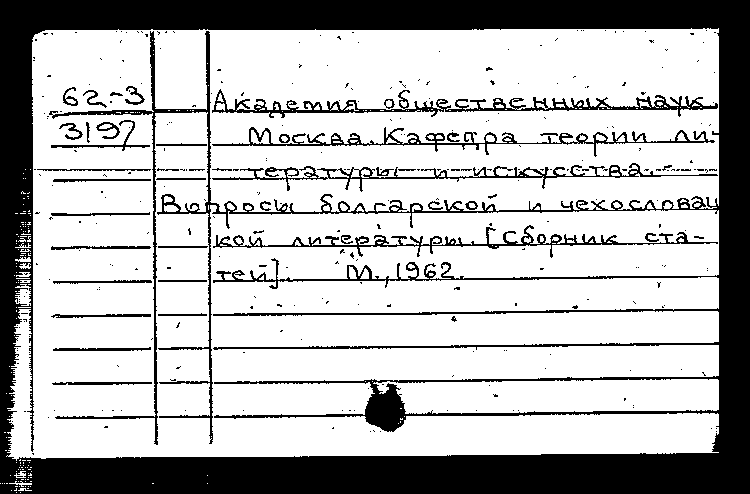 62-3
3197
Академия общественных наук.
Москва. Кафедра теории ли-
тературы и искусства.-
Вопросы болгарской и чехословац
кой литературы. [Сборник ста-
тей]. М., 1962.